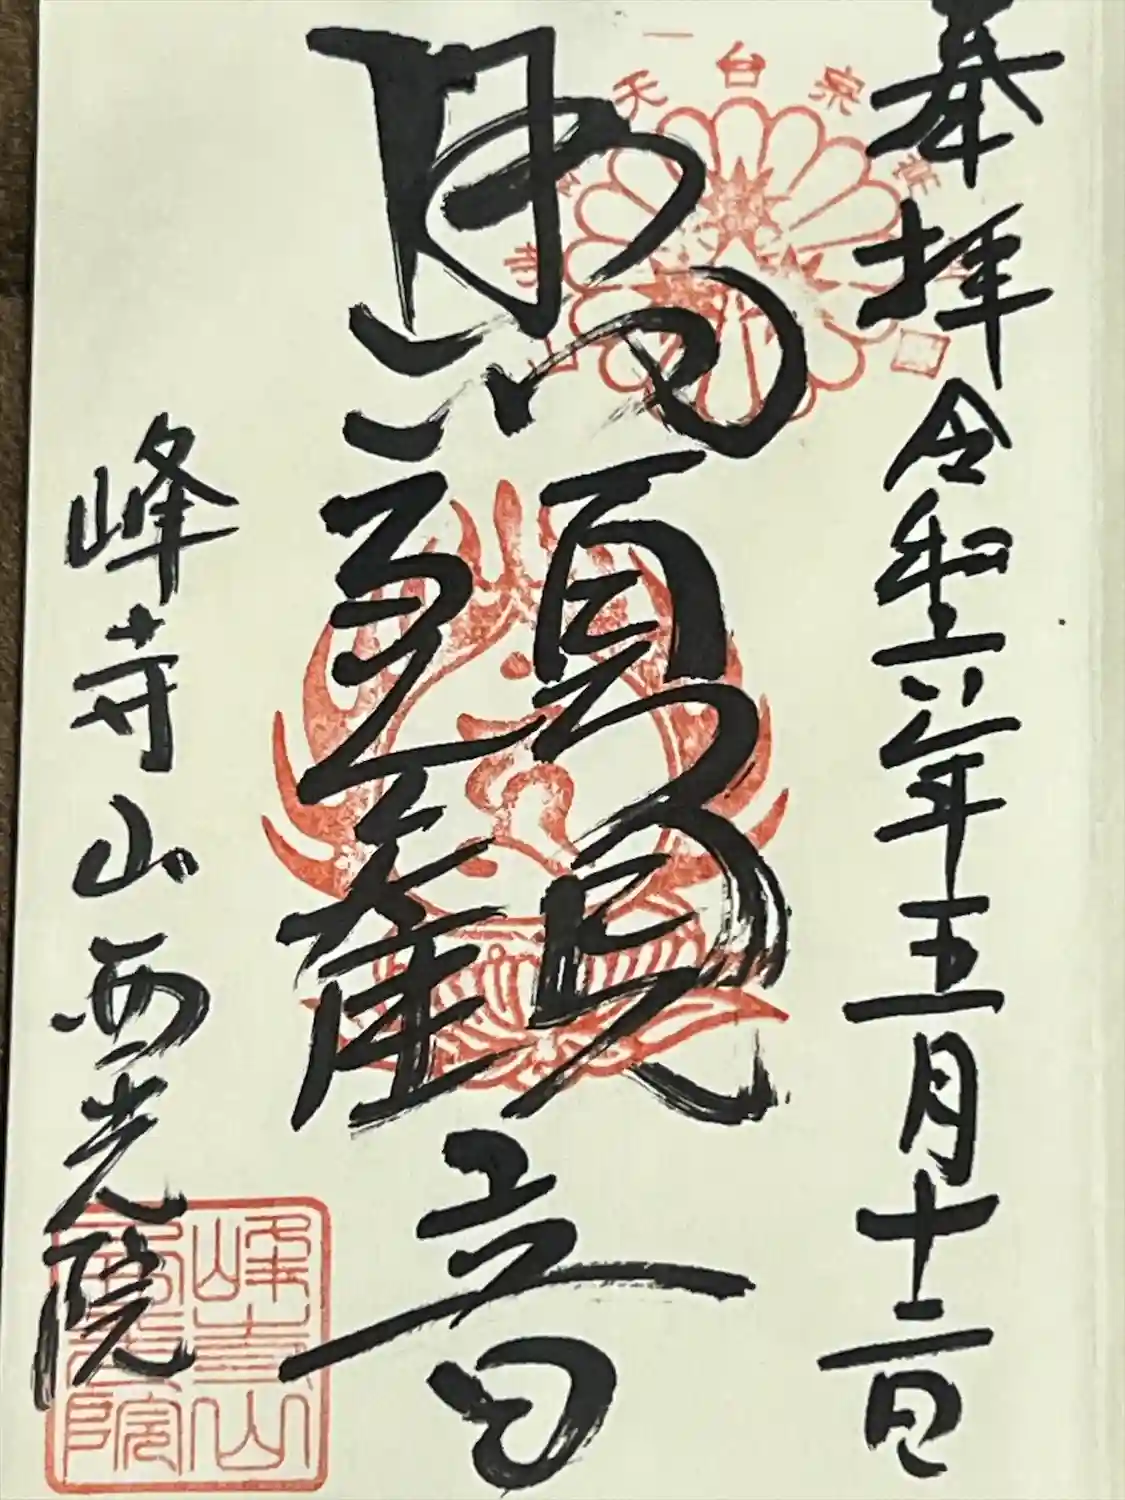 奉拝 令和六年五月十二日
馬頭観音
峰寺山西光院
天台宗
峰寺山
西光院